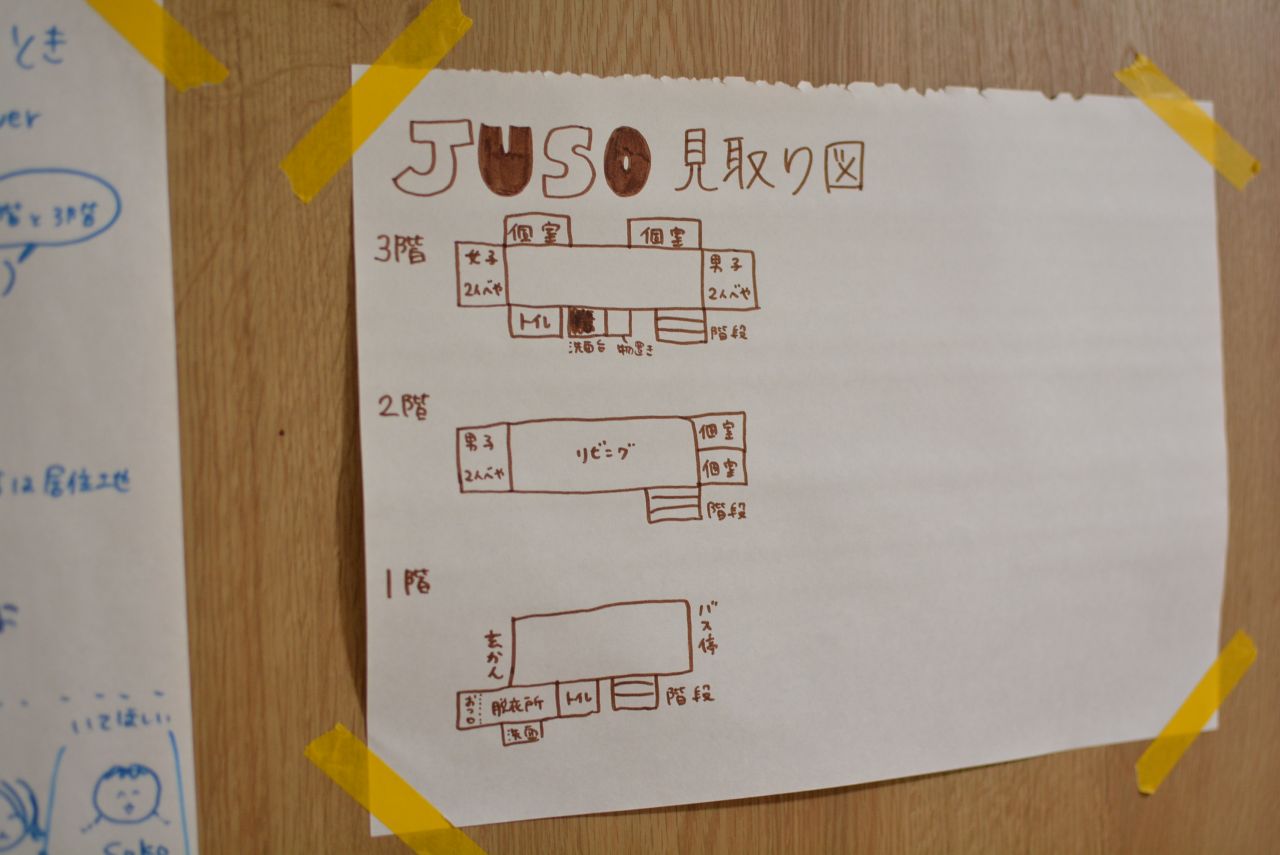 とき
ver
階と3階
は居住土地
いてほしい
JUSO 見取り図
3階
個室
個室
女子
2人べや
男子
2人べや
トイレ
階段
洗面台
物置き
2階
男子
2人べや
リビング
個室
個室
階段
1階
玄かん
バス停
おフロ
脱衣所
トイレ
階段
洗面